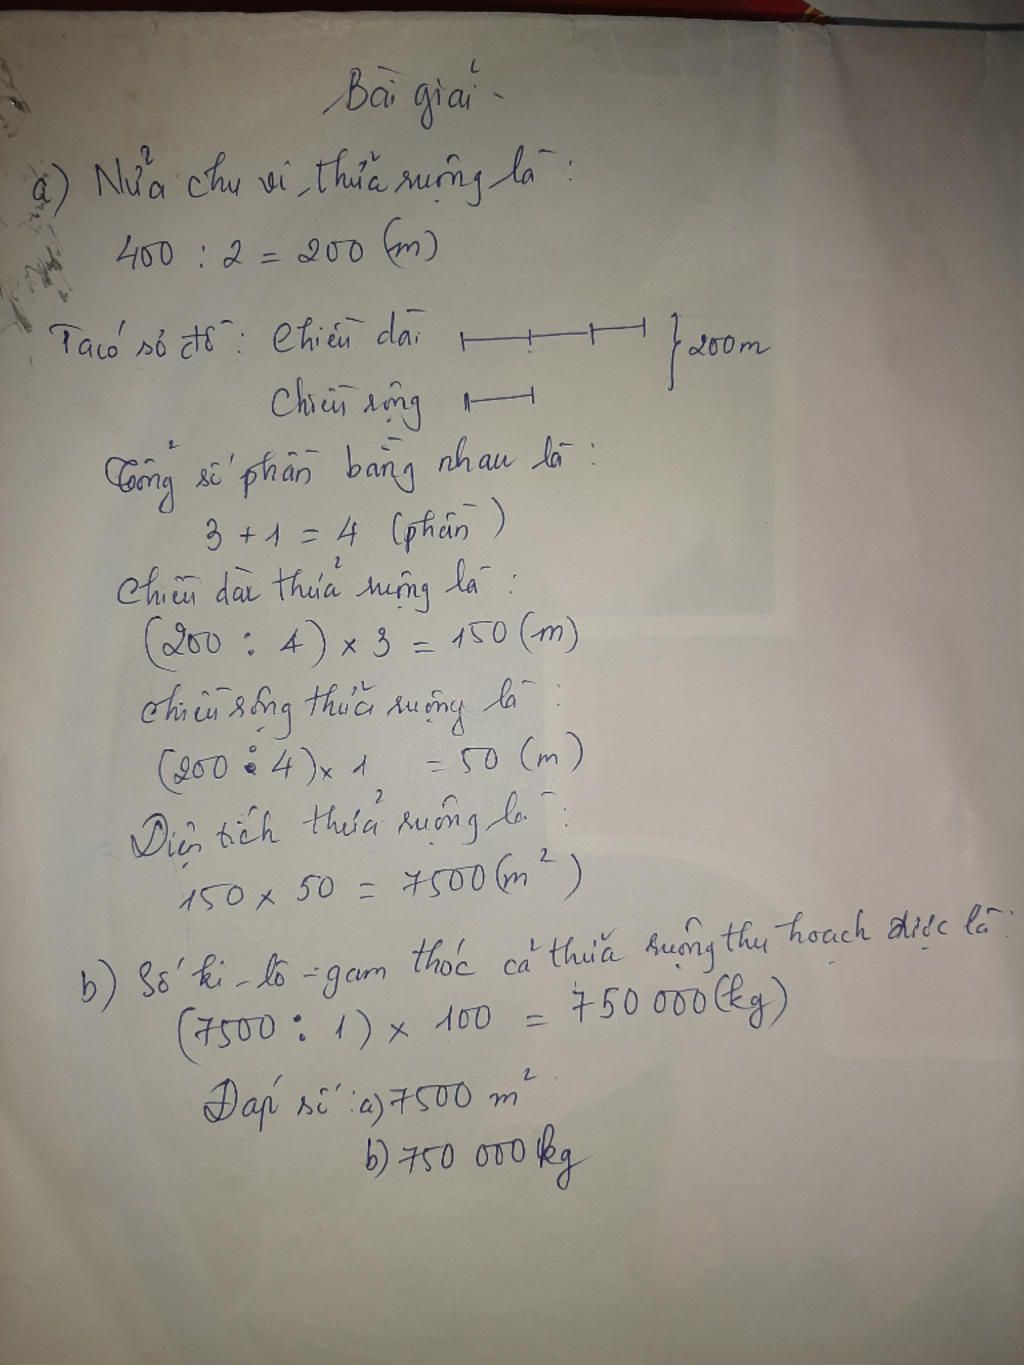 Bài giải
a) Nửa chu vi thửa ruộng là:
400 : 2 = 200 (m)
Ta có sơ đồ: Chiều dài 200m
Chiều rộng
Tổng số phần bằng nhau là:
3 + 1 = 4 (phần)
Chiều dài thửa ruộng là:
(200 : 4) x 3 = 150 (m)
Chiều rộng thửa ruộng là:
(200 : 4) x 1 = 50 (m)
Diện tích thửa ruộng là:
150 x 50 = 7500 (m²)
b) Số ki-lô-gam thóc cả thửa ruộng thu hoạch được là:
(7500 : 1) x 100 = 750 000 (kg)
Đáp số: a) 7500 m²
b) 750 000 kg